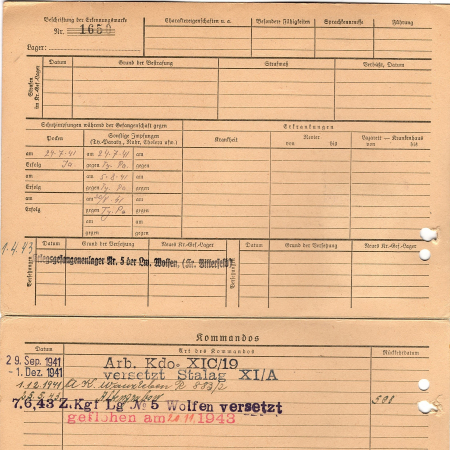 Beschriftung der Erkennungsmarke
Nr. 1650
Lager:
Charaktereigenschaften u. a.
Besondere Fähigkeiten
Sprachkenntnisse
Führung
Strafen im Kr.-Gef.-Lager
Datum
Grund der Bestrafung
Strafmaß
Verbüßt, Datum
Schutzimpfungen während der Gefangenschaft gegen
Erkrankungen
Pocken
Sonstige Impfungen
(Ty.-Paraty., Ruhr, Cholera usw.)
Krankheit
Revier
von bis
Lazarett — Krankenhaus
von bis
am 24.7.41 am 24.7.41 am
Erfolg Ja gegen Ty. Pa. gegen
am am 5.8.41 am
Erfolg gegen Ty. Pa gegen
am am 41 am
Erfolg gegen Ty. Pa gegen
am am
gegen gegen
1.4.43
Versetzungen
Datum
Grund der Versetzung
Neues Kr.-Gef.-Lager
Versetzungen
Datum
Grund der Versetzung
Neues Kr.-Gef.-Lager
Kriegsgefangenenlager Nr. 5 der Lw. Wolfen, (Kr. Bitterfeld)
Kommandos
Datum
Art des Kommandos
Rückkehrdatum
29. Sep. 1941 Arb. Kdo. XIC/19
- 1. Dez. 1941 versetzt Stalag XI/A
1.12.1941
7.6.43 Z.Kgf Lg № 5 Wolfen versetzt
geflohen am 1943